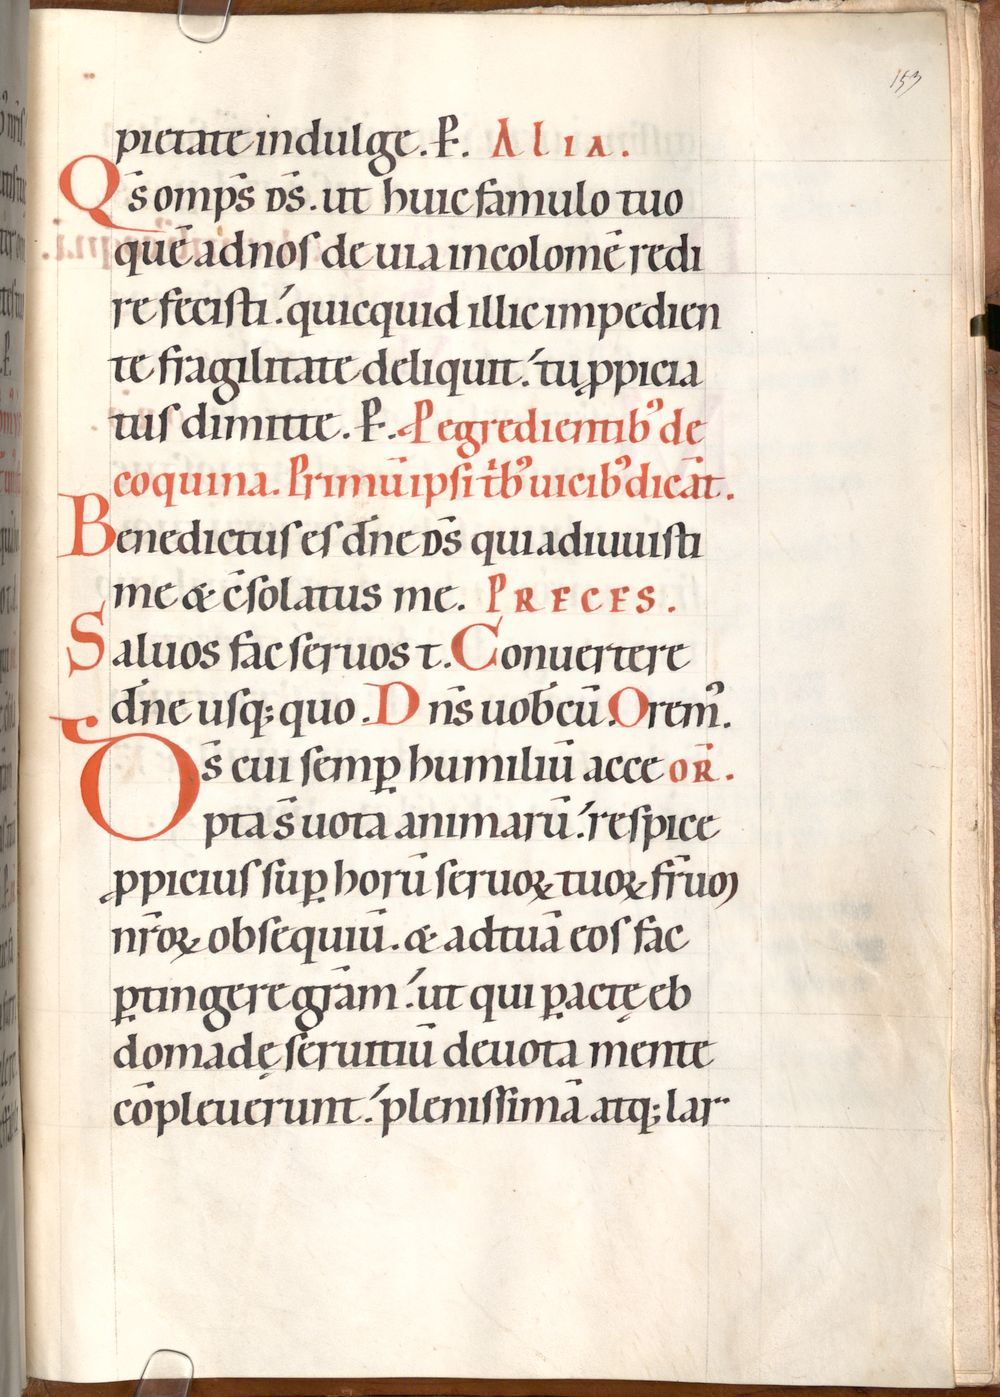 153
pietate indulge. P̄. Alia.
Qs̄ omp̄s ds̄. ut huic famulo tuo
quē ad nos de uia incolomē redi
re fecisti. quicquid illic impedien
te fragilitate deliquit. tu ꝓpicia
tus dimitte. P̄. P egredientibꝰ de
coquina. Primū ipsi t̄bꝰ uicibꝰ dicāt.
Benedictus es dn̄e ds̄ qui adiuuisti
me & c̄solatus me. PRECES.
Saluos fac seruos t. Conuertere
dn̄e usq; quo. Dn̄s uob̄cū. Oremꝰ.
Ds̄ cui semꝑ humiliū acce OR̄.
pta s̄ uota animarū. respice
ꝓpicius suꝑ horū seruoꝝ tuoꝝ fr̄uꝫ
nr̄oꝝ obsequiū. & ad tuā eos fac
ꝑtingere grām. ut qui ꝑactę eb
domadę seruitiū deuota mente
cōpleuerunt. plenissimā atq; lar